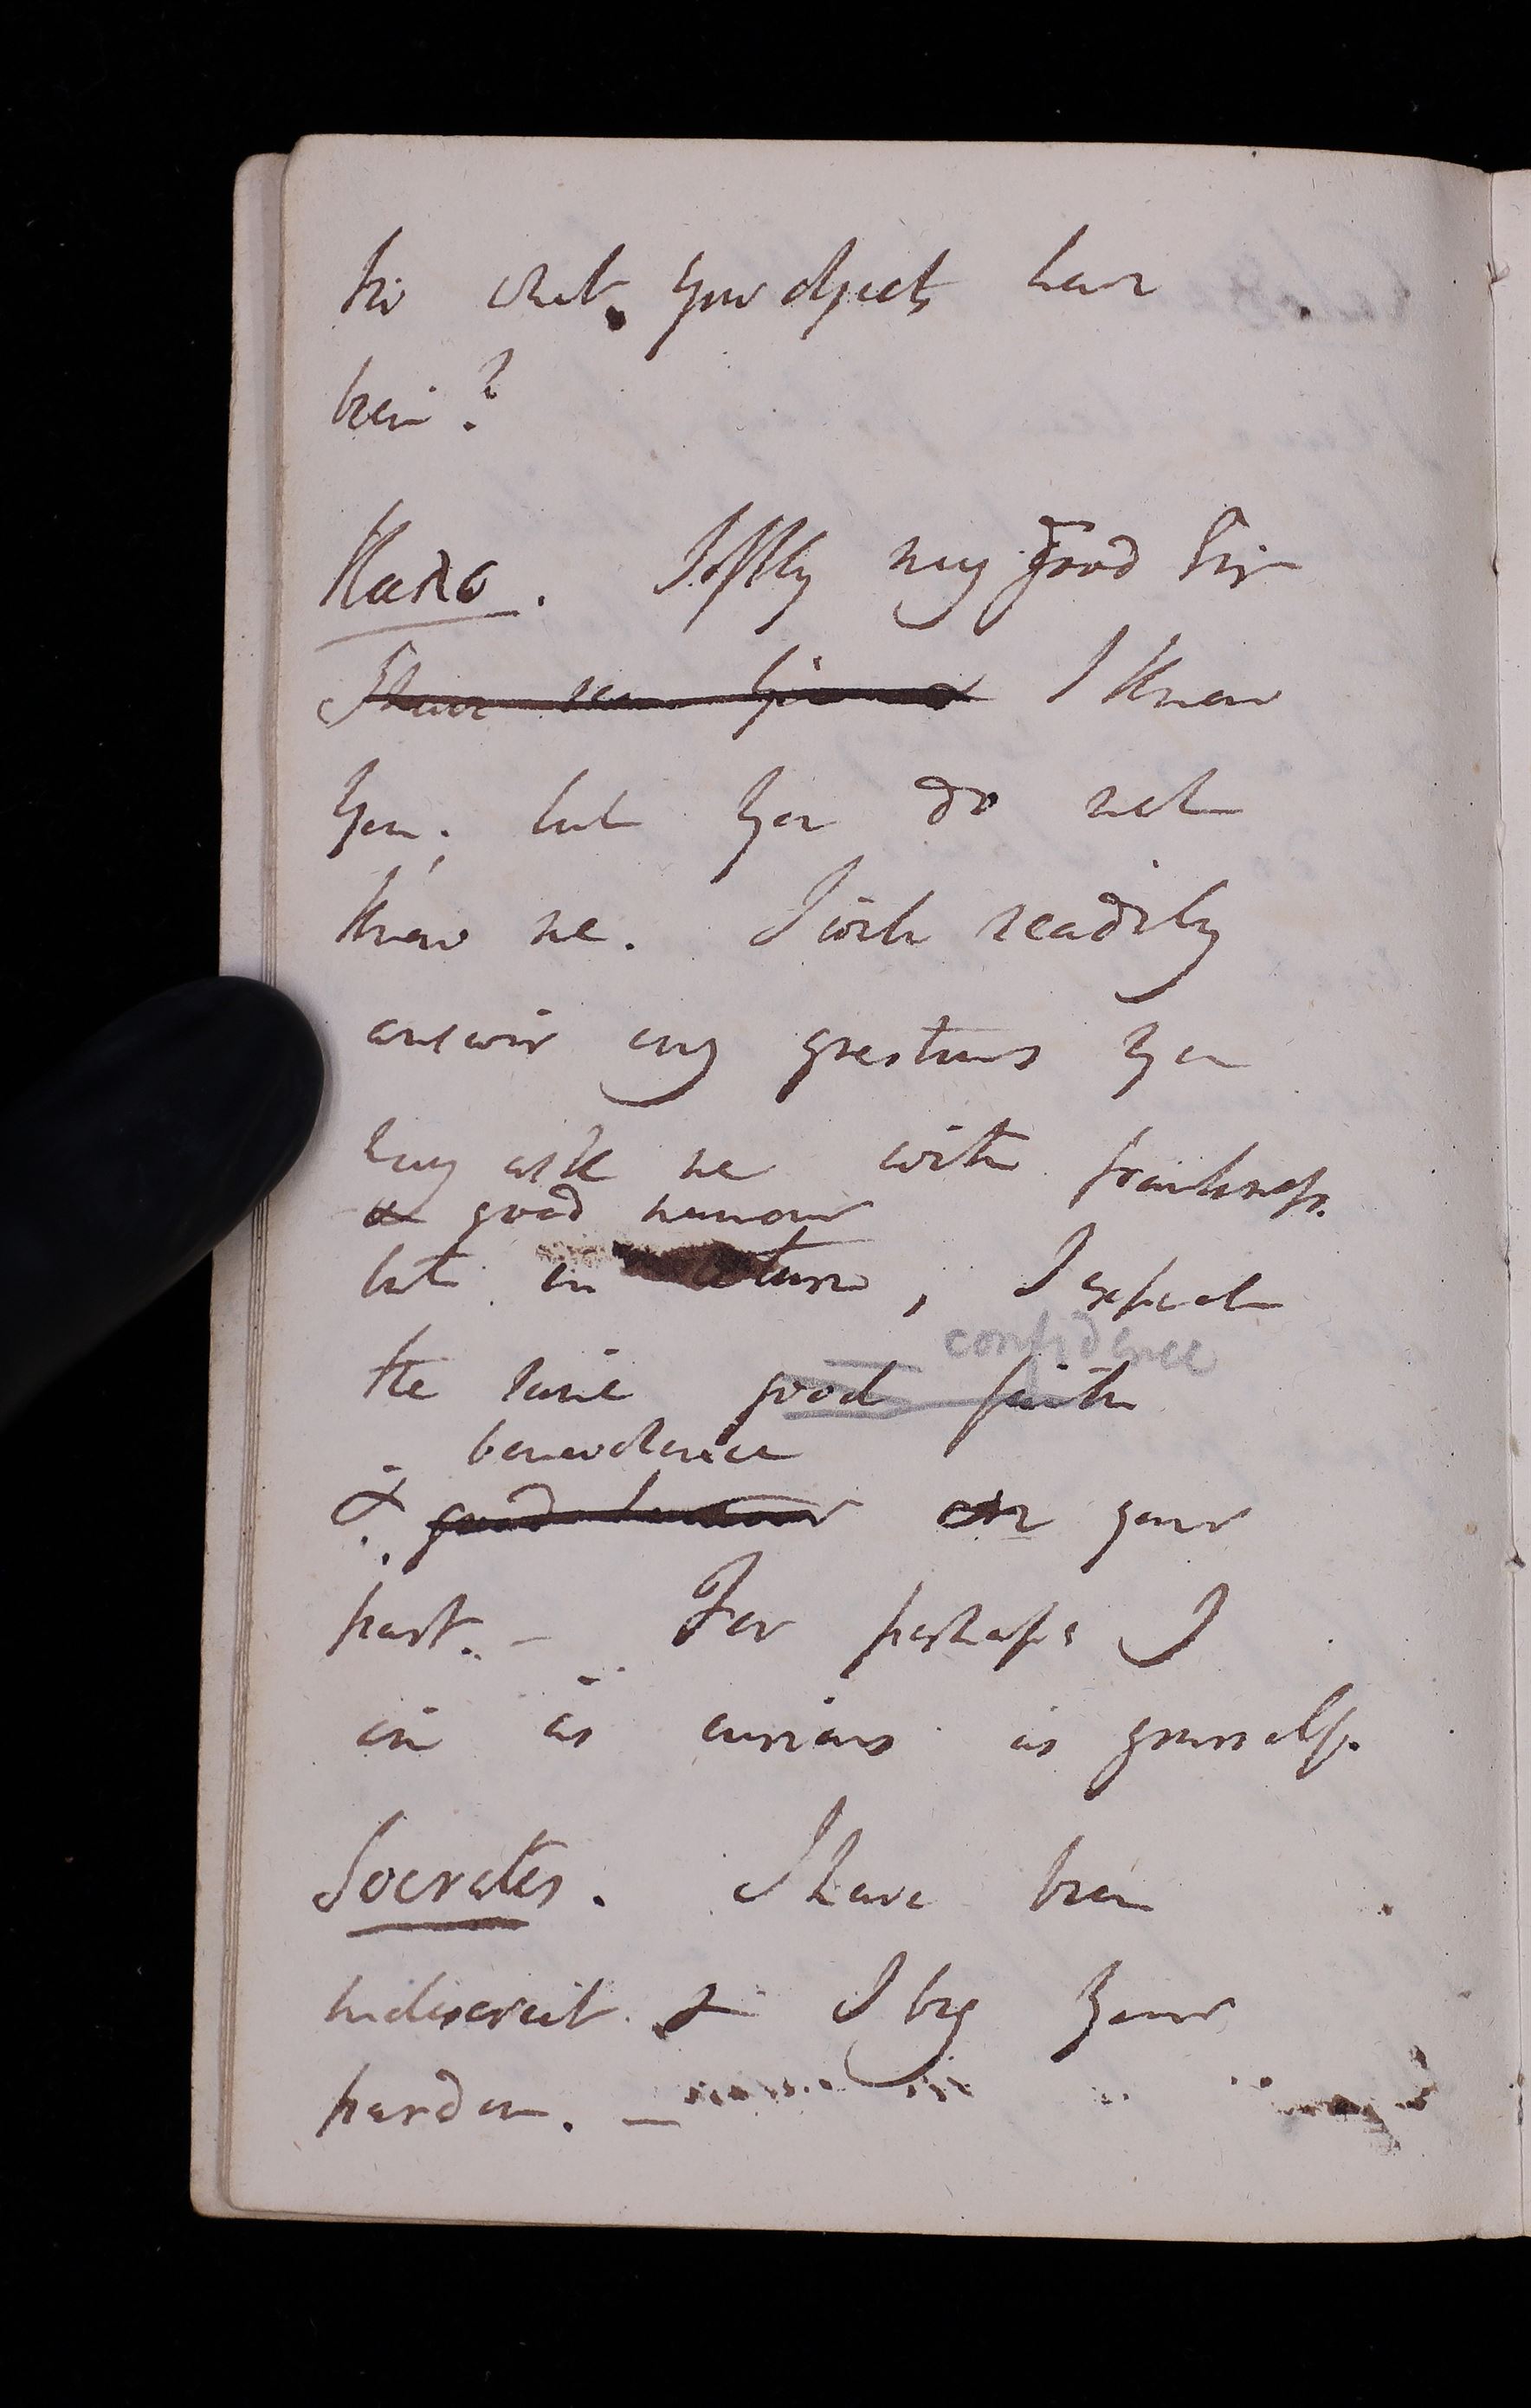 his what your objects have
been?
Softly my good Sir
I have seen I know
you; but you do not
know me. I will readily
answer any questions you
may ask me with frankness
& good humour
but in return, I expect
confidence
the same good faith
benevolence
& good humour on your
part. — For perhaps I
am as curious as yourself.
Socrates. I have been
indiscreet & I beg your
pardon. —